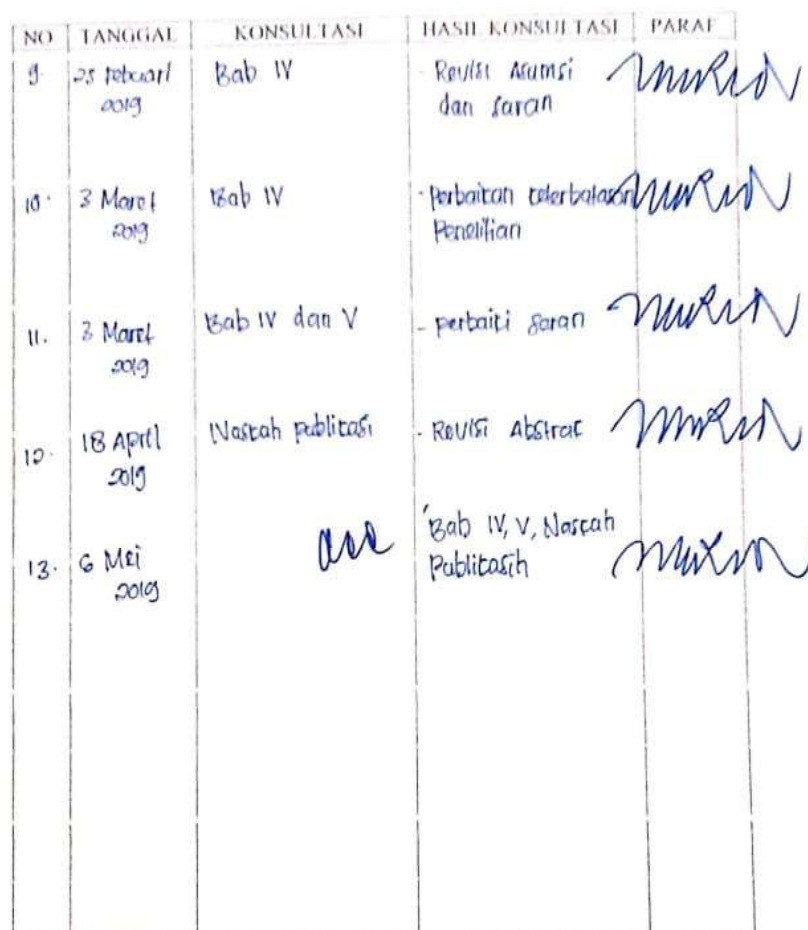 NO TANGGAL KONSULTASI HASIL KONSULTASI PARAF
9. 25 Februari Bab IV - Revisi Asumsi
2019 dan saran
10. 3 Maret Bab IV - Perbaikan keterbatasan
2019 Penelitian
11. 3 Maret Bab IV dan V - perbaiki saran
2019
12. 18 April Naskah publikasi - Revisi Abstrak
2019
13. 6 Mei acc Bab IV, V, Naskah
2019 Publikasih